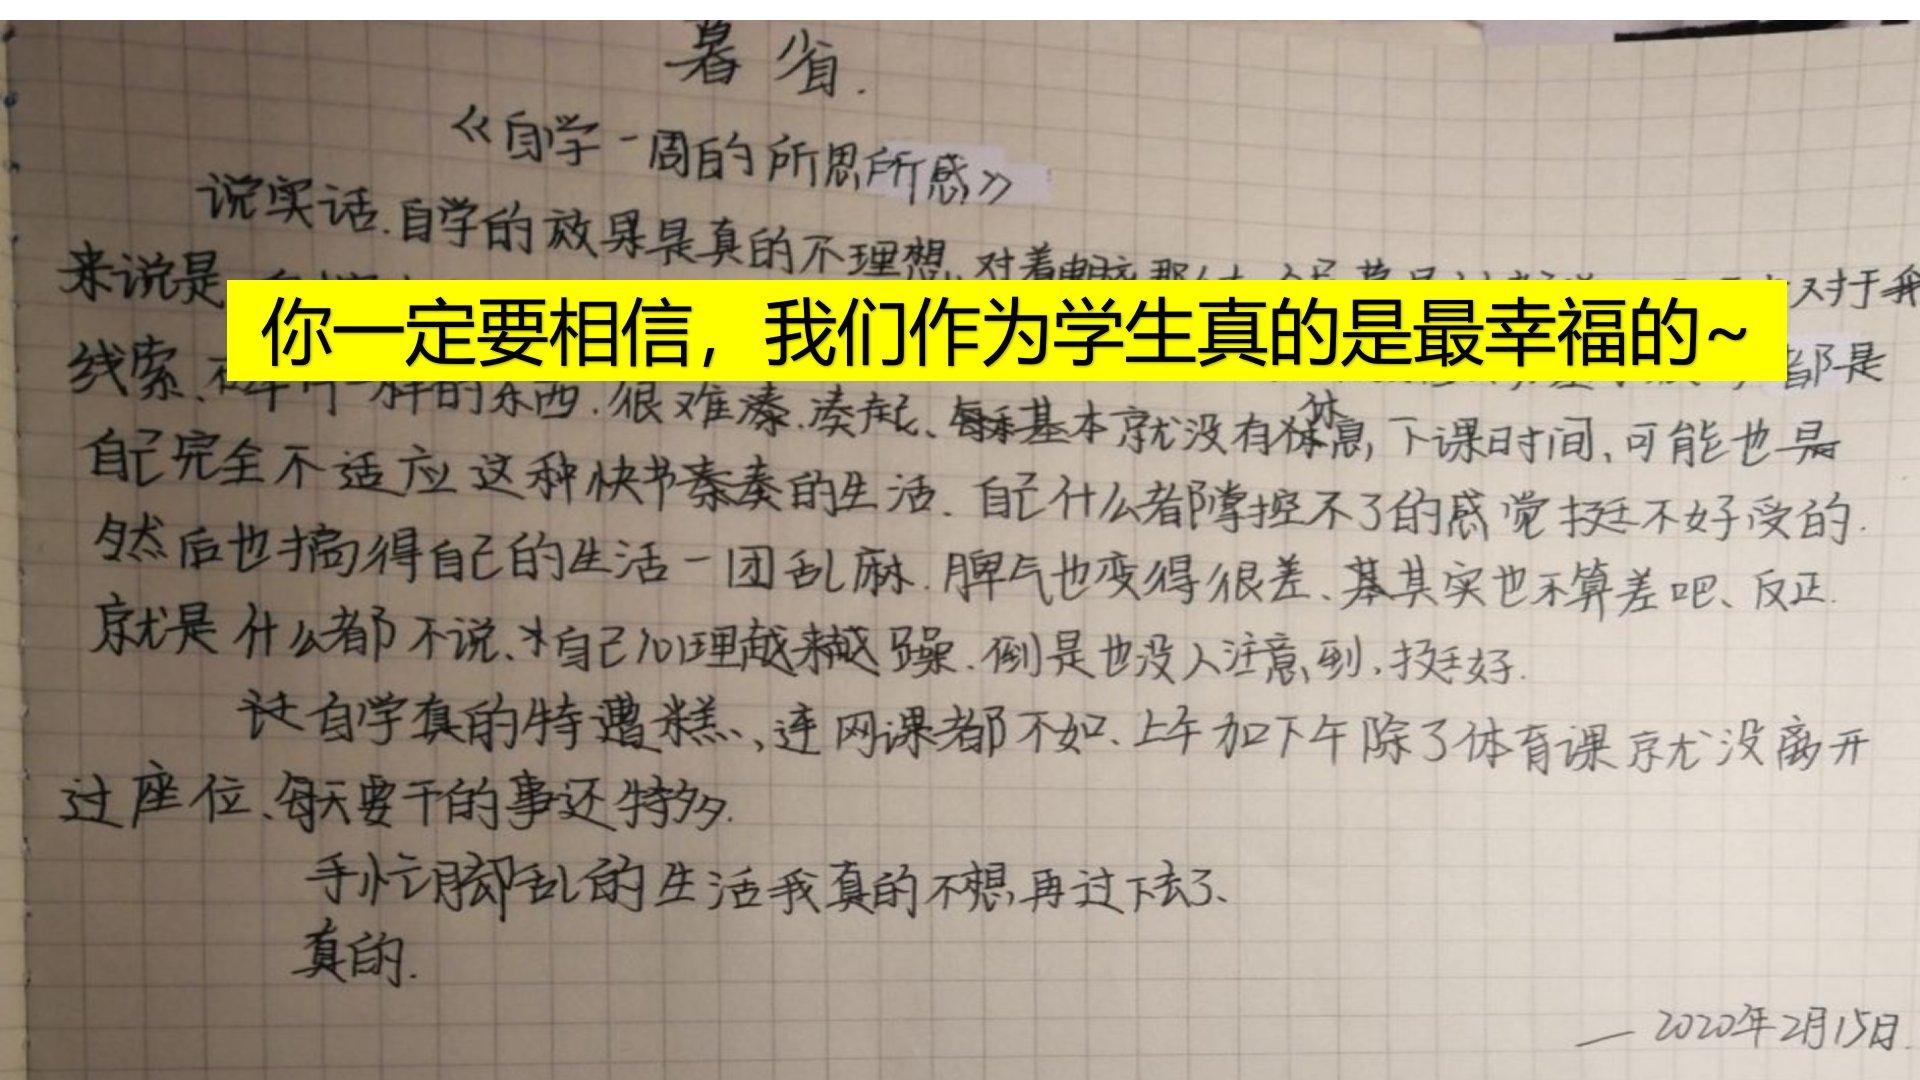 暮省.
《自学一周的所思所感》
说实话.自学的效果是真的不理想、对着电脑
来说是 对于我
你一定要相信，我们作为学生真的是最幸福的~
线索、 一样的东西.很难凑.凑在一起、每天基本就没有休息,下课时间、可能也是
都是
自己完全不适应这种快节奏的生活.自己什么都掌控不了的感觉挺不好受的.
然后也搞得自己的生活一团乱麻.脾气也变得很差、其实也不算差吧、反正.
就是什么都不说、自己心理越来越躁.倒是也没人注意到.挺好.
自学真的特遭糕、连网课都不如.上午加下午除了体育课就没离开
过座位、每天要干的事还特多.
手忙脚乱的生活我真的不想再过下去了、
真的.
—2020年2月15日.